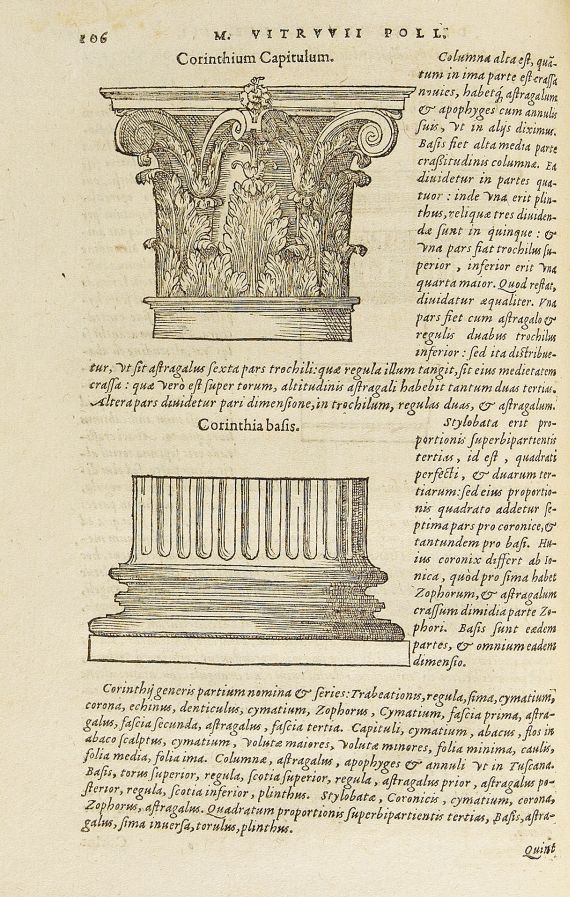 106
M. VITRVVII POLL.
Corinthium Capitulum.
Columna alta est, quã-
tum in ima parte est crassa
nouies, habetq́ astragalum
& apophyges cum annulis
suis, vt in alijs diximus.
Basis fiet alta media parte
crassitudinis columnæ. Ea
diuidetur in partes qua-
tuor: inde vna erit plin-
thus, reliquæ tres diuiden-
dæ sunt in quinque: &
vna pars fiat trochilus su-
perior, inferior erit vna
quarta maior. Quod restat,
diuidatur æqualiter. Vna
pars fiet cum astragalo &
regulis duabus trochilus
inferior: sed ita distribue-
tur, vt sit astragalus sexta pars trochili: quæ regula illum tangit, sit eius medietatem
crassa: quæ verò est super torum, altitudinis astragali habebit tantum duas tertias.
Altera pars diuidetur pari dimensione, in trochilum, regulas duas, & astragalum.
Corinthia basis.
Stylobata erit pro-
portionis superbipartientis
tertias, id est, quadrati
perfecti, & duarum ter-
tiarum: sed eius proportio-
nis quadrato addetur se-
ptima pars pro coronice, &
tantundem pro basi. Hu-
ius coronix differt ab Io-
nica, quòd pro sima habet
Zophorum, & astragalum
crassum dimidia parte Zo-
phori. Basis sunt eædem
partes, & omnium eadem
dimensio.
Corinthij generis partium nomina & series: Trabeationis, regula, sima, cymatium,
corona, echinus, denticulus, cymatium, Zophorus, Cymatium, fascia prima, astra-
galus, fascia secunda, astragalus, fascia tertia. Capituli, cymatium, abacus, flos in
abaco scalptus, cymatium, volutæ maiores, volutæ minores, folia minima, caulis,
folia media, folia ima. Columnæ, astragalus, apophyges & annuli vt in Tuscana.
Basis, torus superior, regula, scotia superior, regula, astragalus prior, astragalus po-
sterior, regula, scotia inferior, plinthus. Stylobatæ, Coronicis, cymatium, corona,
Zophorus, astragalus. Quadratum proportionis superbipartientis tertias, Basis, astra-
galus, sima inuersa, torulus, plinthus.
Quint